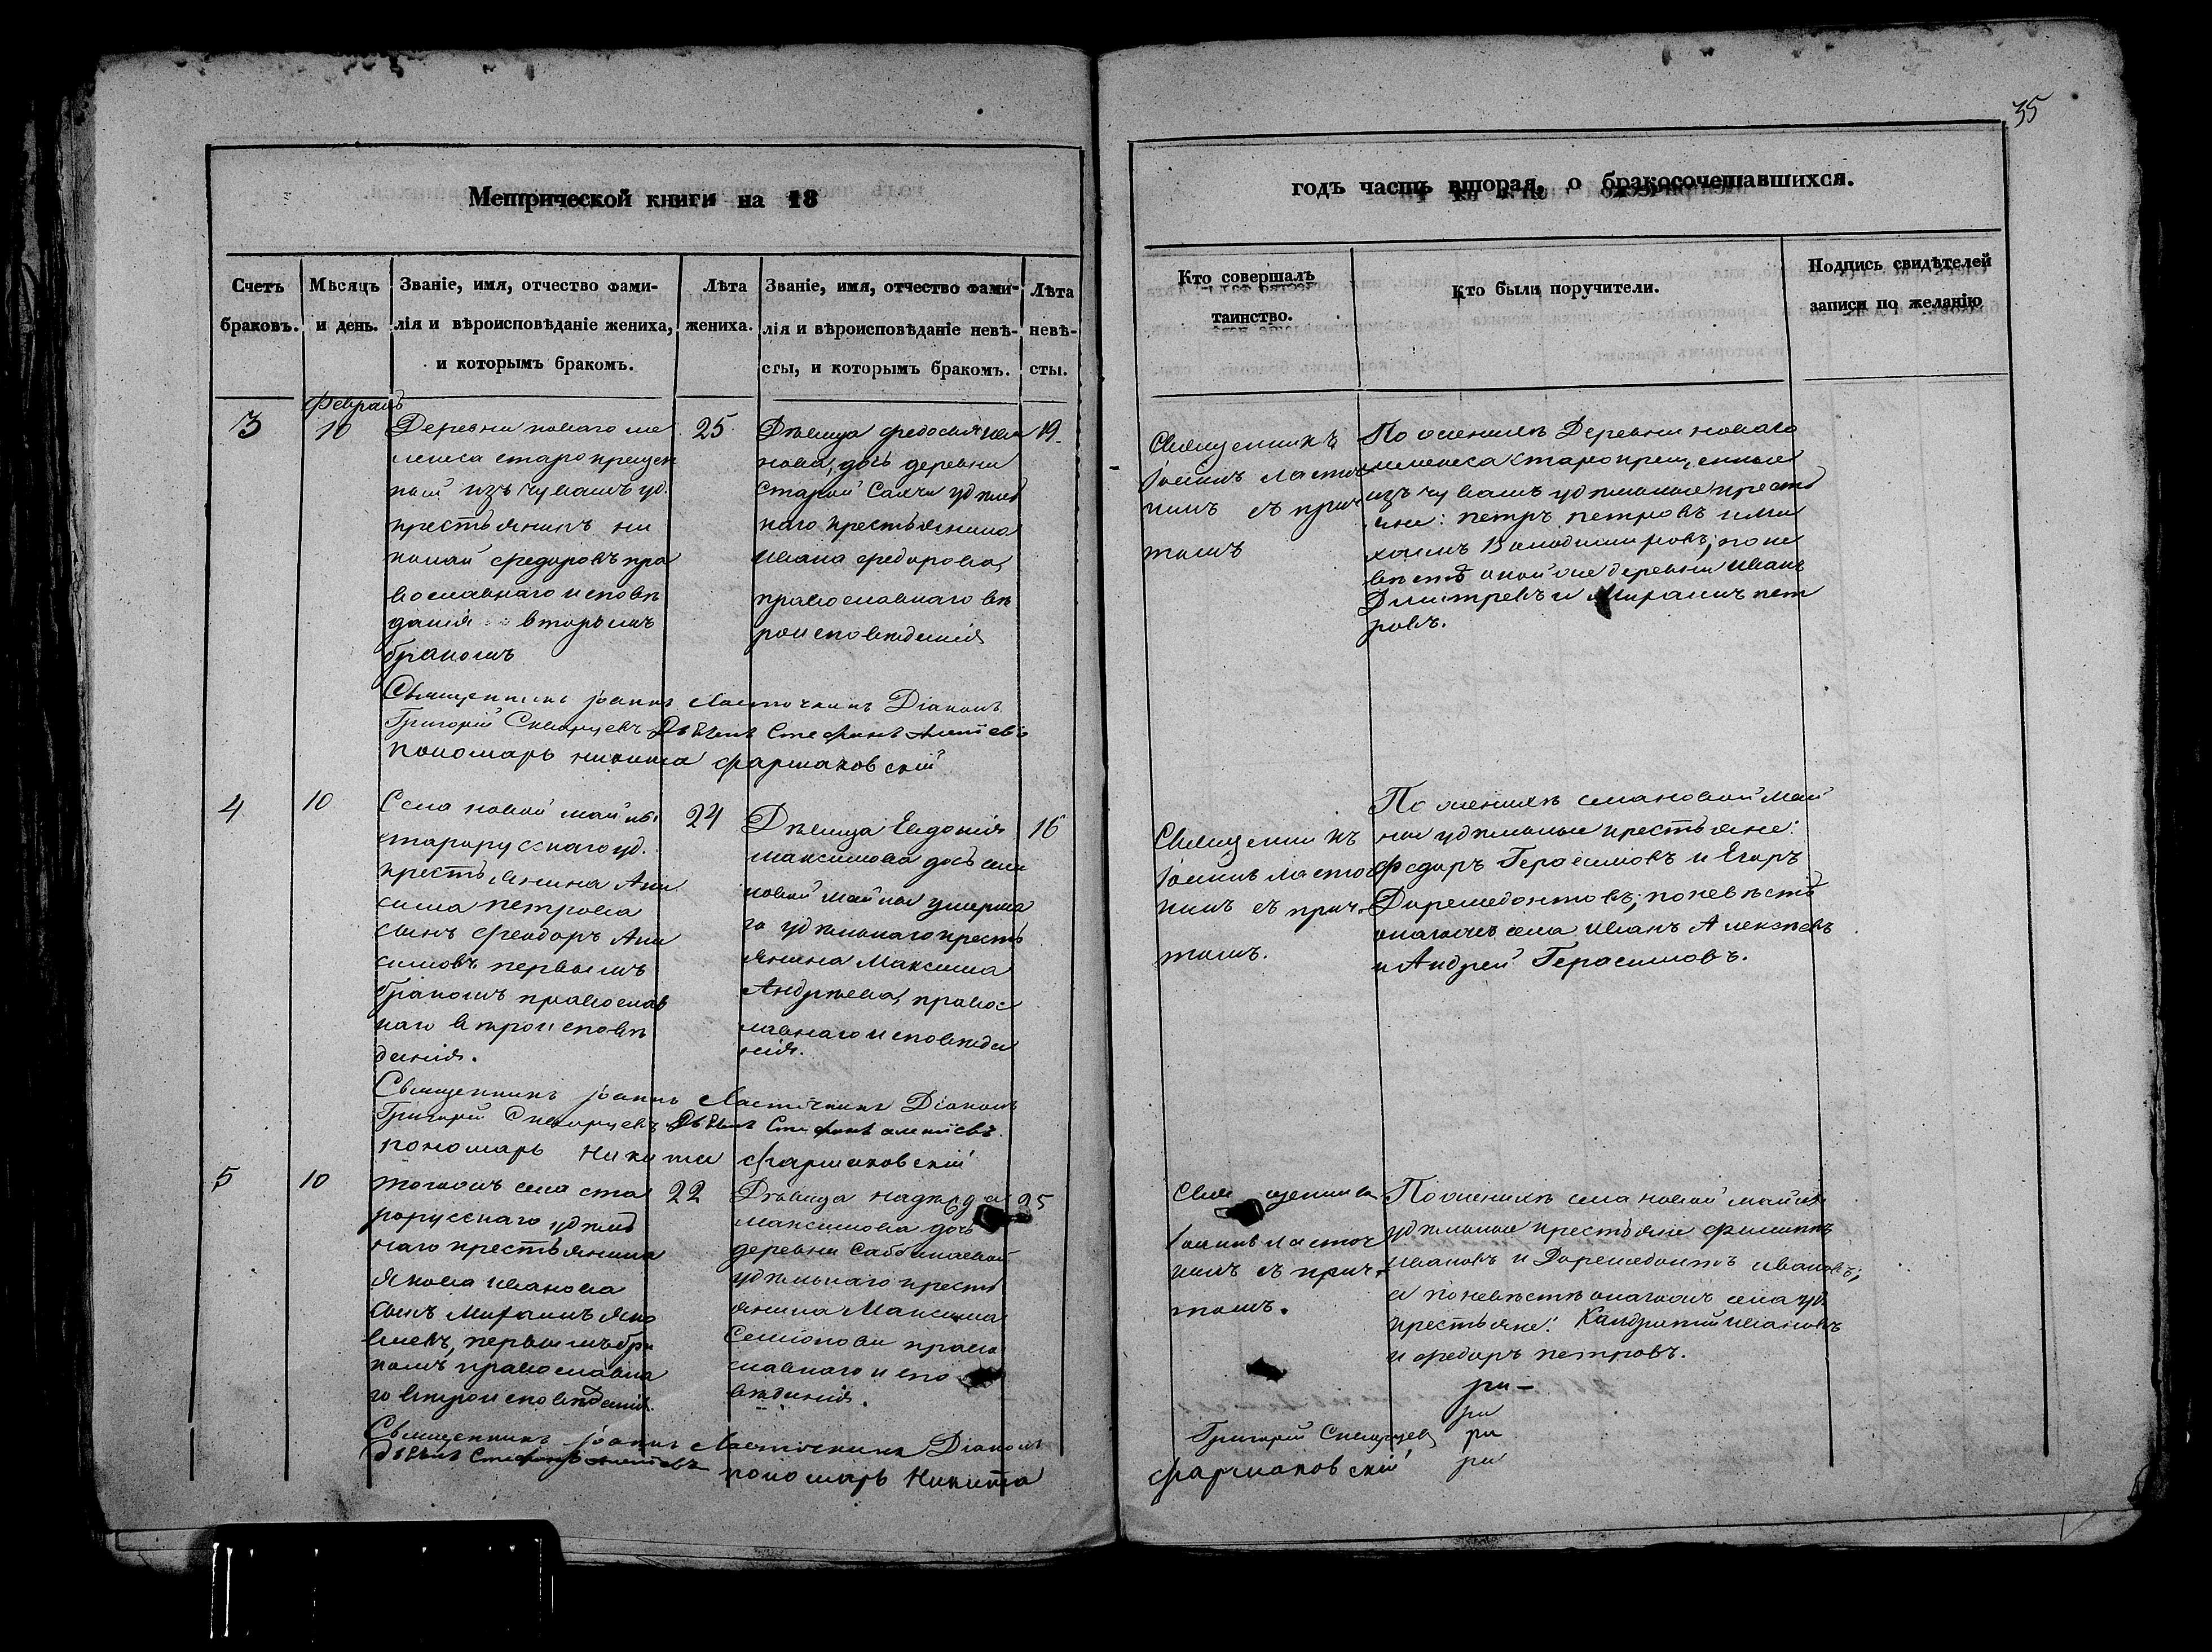 35
Метрической книги на 18
годъ часть вторая, о бракосочетавшихся.
Счетъ
браковъ.
Мѣсяцъ
и день.
Званіе, имя, отчество фами-
лія и вѣроисповѣданіе жениха,
и которымъ бракомъ.
Лѣта
жениха.
Званіе, имя, отчество фами-
лія и вѣроисповѣданіе невѣ-
сты, и которымъ бракомъ.
Лѣта
невѣ-
сты.
Кто совершалъ
таинство.
Кто были поручители.
Подпись свидѣтелей
записи по желанію
Февраль
3
10
Деревни новаго
старокрещен
ный изъ чувашъ уд.
крестьянинъ ни
колай федоровъ пра
вославнаго исповѣ
данія вторымъ
бракомъ
25
Дѣвица федосья ива
нова, дочь деревни
старой Сахчи удѣль
наго крестьянина
ивана федорова,
православнаго вѣ
роисповѣданія
19.
Священникъ
Іоаннъ Ласточ
кинъ съ прич
томъ
По женихѣ Деревни новаго
старокрещенные
изъ чувашъ удѣльные кресть
яне: петръ петровъ и ми
хаилъ Володимировъ; по не
вѣстѣ оной же деревни иванъ
Дмитревъ и Миронъ пет
ровъ.
Священникъ Іоаннъ Ласточкинъ Діаконъ
Григорій Скворцевъ Дьячекъ Стефанъ
пономарь никита фармаковскій
4
10
Села новой майны
старорусскаго уд.
крестьянина Ани
сима петрова
сынъ Феодоръ Ани
симовъ первымъ
бракомъ православ
наго вѣроисповѣ
данія.
24
Дѣвица Евдокія
максимова дочь села
новой майны умерша
го удѣльнаго кресть
янина Максима
Андрѣева, правос
лавнаго исповѣда
нія.
16
Священникъ
Іоаннъ Ласточ
кинъ съ прич-
томъ.
По женихѣ села новой май
ны удѣльные крестьяне:
Федоръ Герасимовъ и Егоръ
Дормедонтовъ; по невѣстѣ
онагожъ села иванъ Алексѣевъ
и Андрей Герасимовъ.
Священникъ Іоаннъ Ласточкинъ Діаконъ
Григорій Скворцевъ Дьячекъ Стефанъ
пономарь Никита фармаковскій
5
10
тогожъ села ста
рорусскаго удѣль
наго крестьянина
Якова иванова
сынъ Миронъ Яко
влевъ, первымъ бра
комъ православна
го вѣроисповѣданія.
22
Дѣвица надѣжда
максимова дочь
деревни
удѣльнаго кресть
янина Максима
Семіонова право
славнаго испо
вѣданія.
25
Священникъ
Іоаннъ Ласточ
кинъ съ прич-
томъ.
По женихѣ села новой майны
удѣльные крестьяне филиппъ
ивановъ и Дормедонтъ ивановъ;
а по невѣстѣ онагожъ села уд.
крестьяне: Кандратій ивановъ
и федоръ петровъ.
ри-
ри
ри
ри
Священникъ Іоаннъ Ласточкинъ Діаконъ
Григорій Скворцевъ
дьячекъ Стефанъ
пономарь Никита
фармаковскій